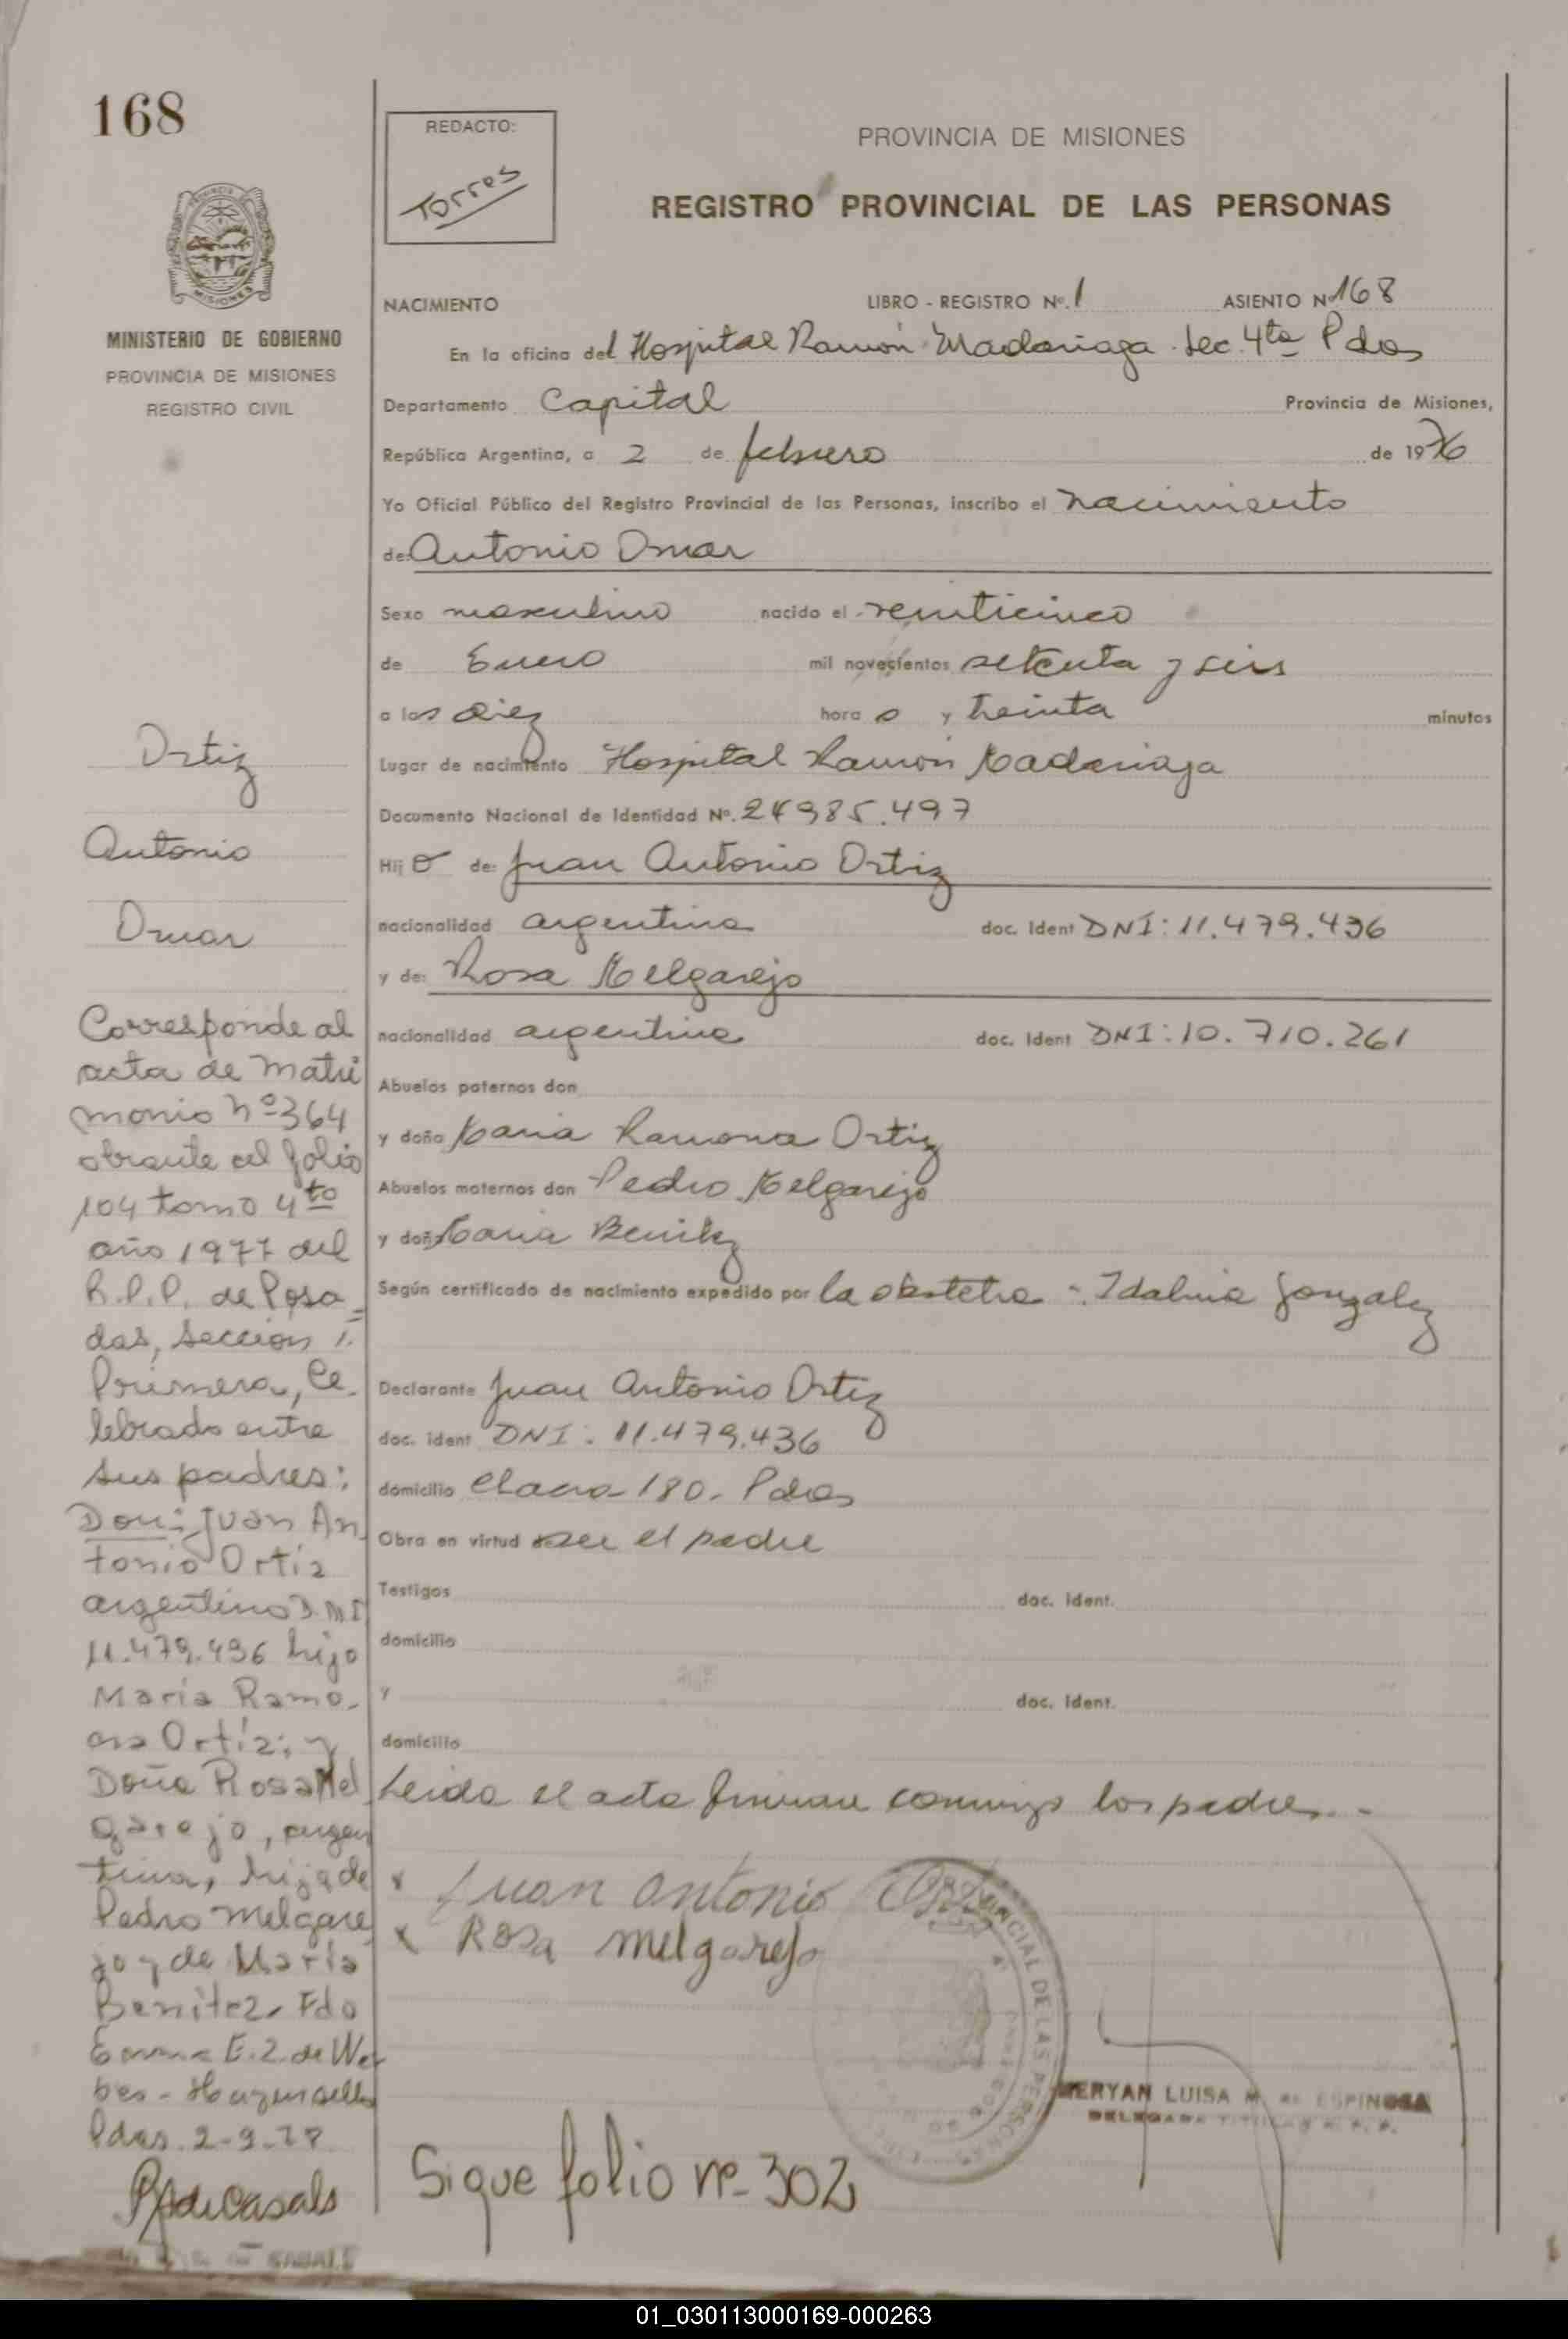 168
REDACTO:
Torres
PROVINCIA DE MISIONES
REGISTRO PROVINCIAL DE LAS PERSONAS
MISIONES
MINISTERIO DE GOBIERNO
PROVINCIA DE MISIONES
REGISTRO CIVIL
NACIMIENTO LIBRO - REGISTRO Nº. 1 ASIENTO Nº 168
En la oficina del Hospital Ramón Madariaga. Sec. 4ta Pdas
Departamento Capital Provincia de Misiones,
República Argentina, a 2 de febrero de 1976
Yo Oficial Público del Registro Provincial de las Personas, inscribo el nacimiento
de: Antonio Omar
Sexo masculino nacido el veinticinco
de Enero mil novecientos setenta y seis
a las diez hora s y treinta minutos
Lugar de nacimiento Hospital Ramón Madariaga
Documento Nacional de Identidad Nº. 24985.497
Hij o de: Juan Antonio Ortiz
nacionalidad argentina doc. Ident DNI: 11.479.436
y de: Rosa Melgarejo
nacionalidad argentina doc. Ident DNI: 10.710.261
Abuelos paternos don
y doña Maria Ramona Ortiz
Abuelos maternos don Pedro Melgarejo
y doña Maria Benitez
Según certificado de nacimiento expedido por la obstetra - Idalina Gonzalez
Declarante Juan Antonio Ortiz
doc. ident DNI: 11.479.436
domicilio Chacra 180. Pdas
Obra en virtud ser el padre
Testigos doc. Ident.
domicilio
y doc. Ident.
domicilio
Leida el acta firman conmigo los padres.-
x Juan Antonio Ortiz
x Rosa Melgarejo
PROVINCIAL DE LAS PERSONAS
MERYAN LUISA M. de ESPINOSA
DELEGADA TITULAR R. P. P.
Sigue folio nº 302
Ortiz
Antonio
Omar
Corresponde al
acta de Matri
monio nº 364
obrante al folio
104 tomo 4to
año 1977 del
R.P.P. de Posa=
das, Sección 1.
Primera, Ce-
lebrado entre
sus padres:
Don: Juan An
tonio Ortiz
argentino D.N.I
11.479.436 hijo
Maria Ramo-
na Ortíz; y
Doña Rosa Mel
garejo, argen
tina, hija de
Pedro Melgare
jo y de María
Benitez. Fdo
Emma E.Z. de We
ber - Hay un sello
Pdas. 2-9-77
01_030113000169-000263